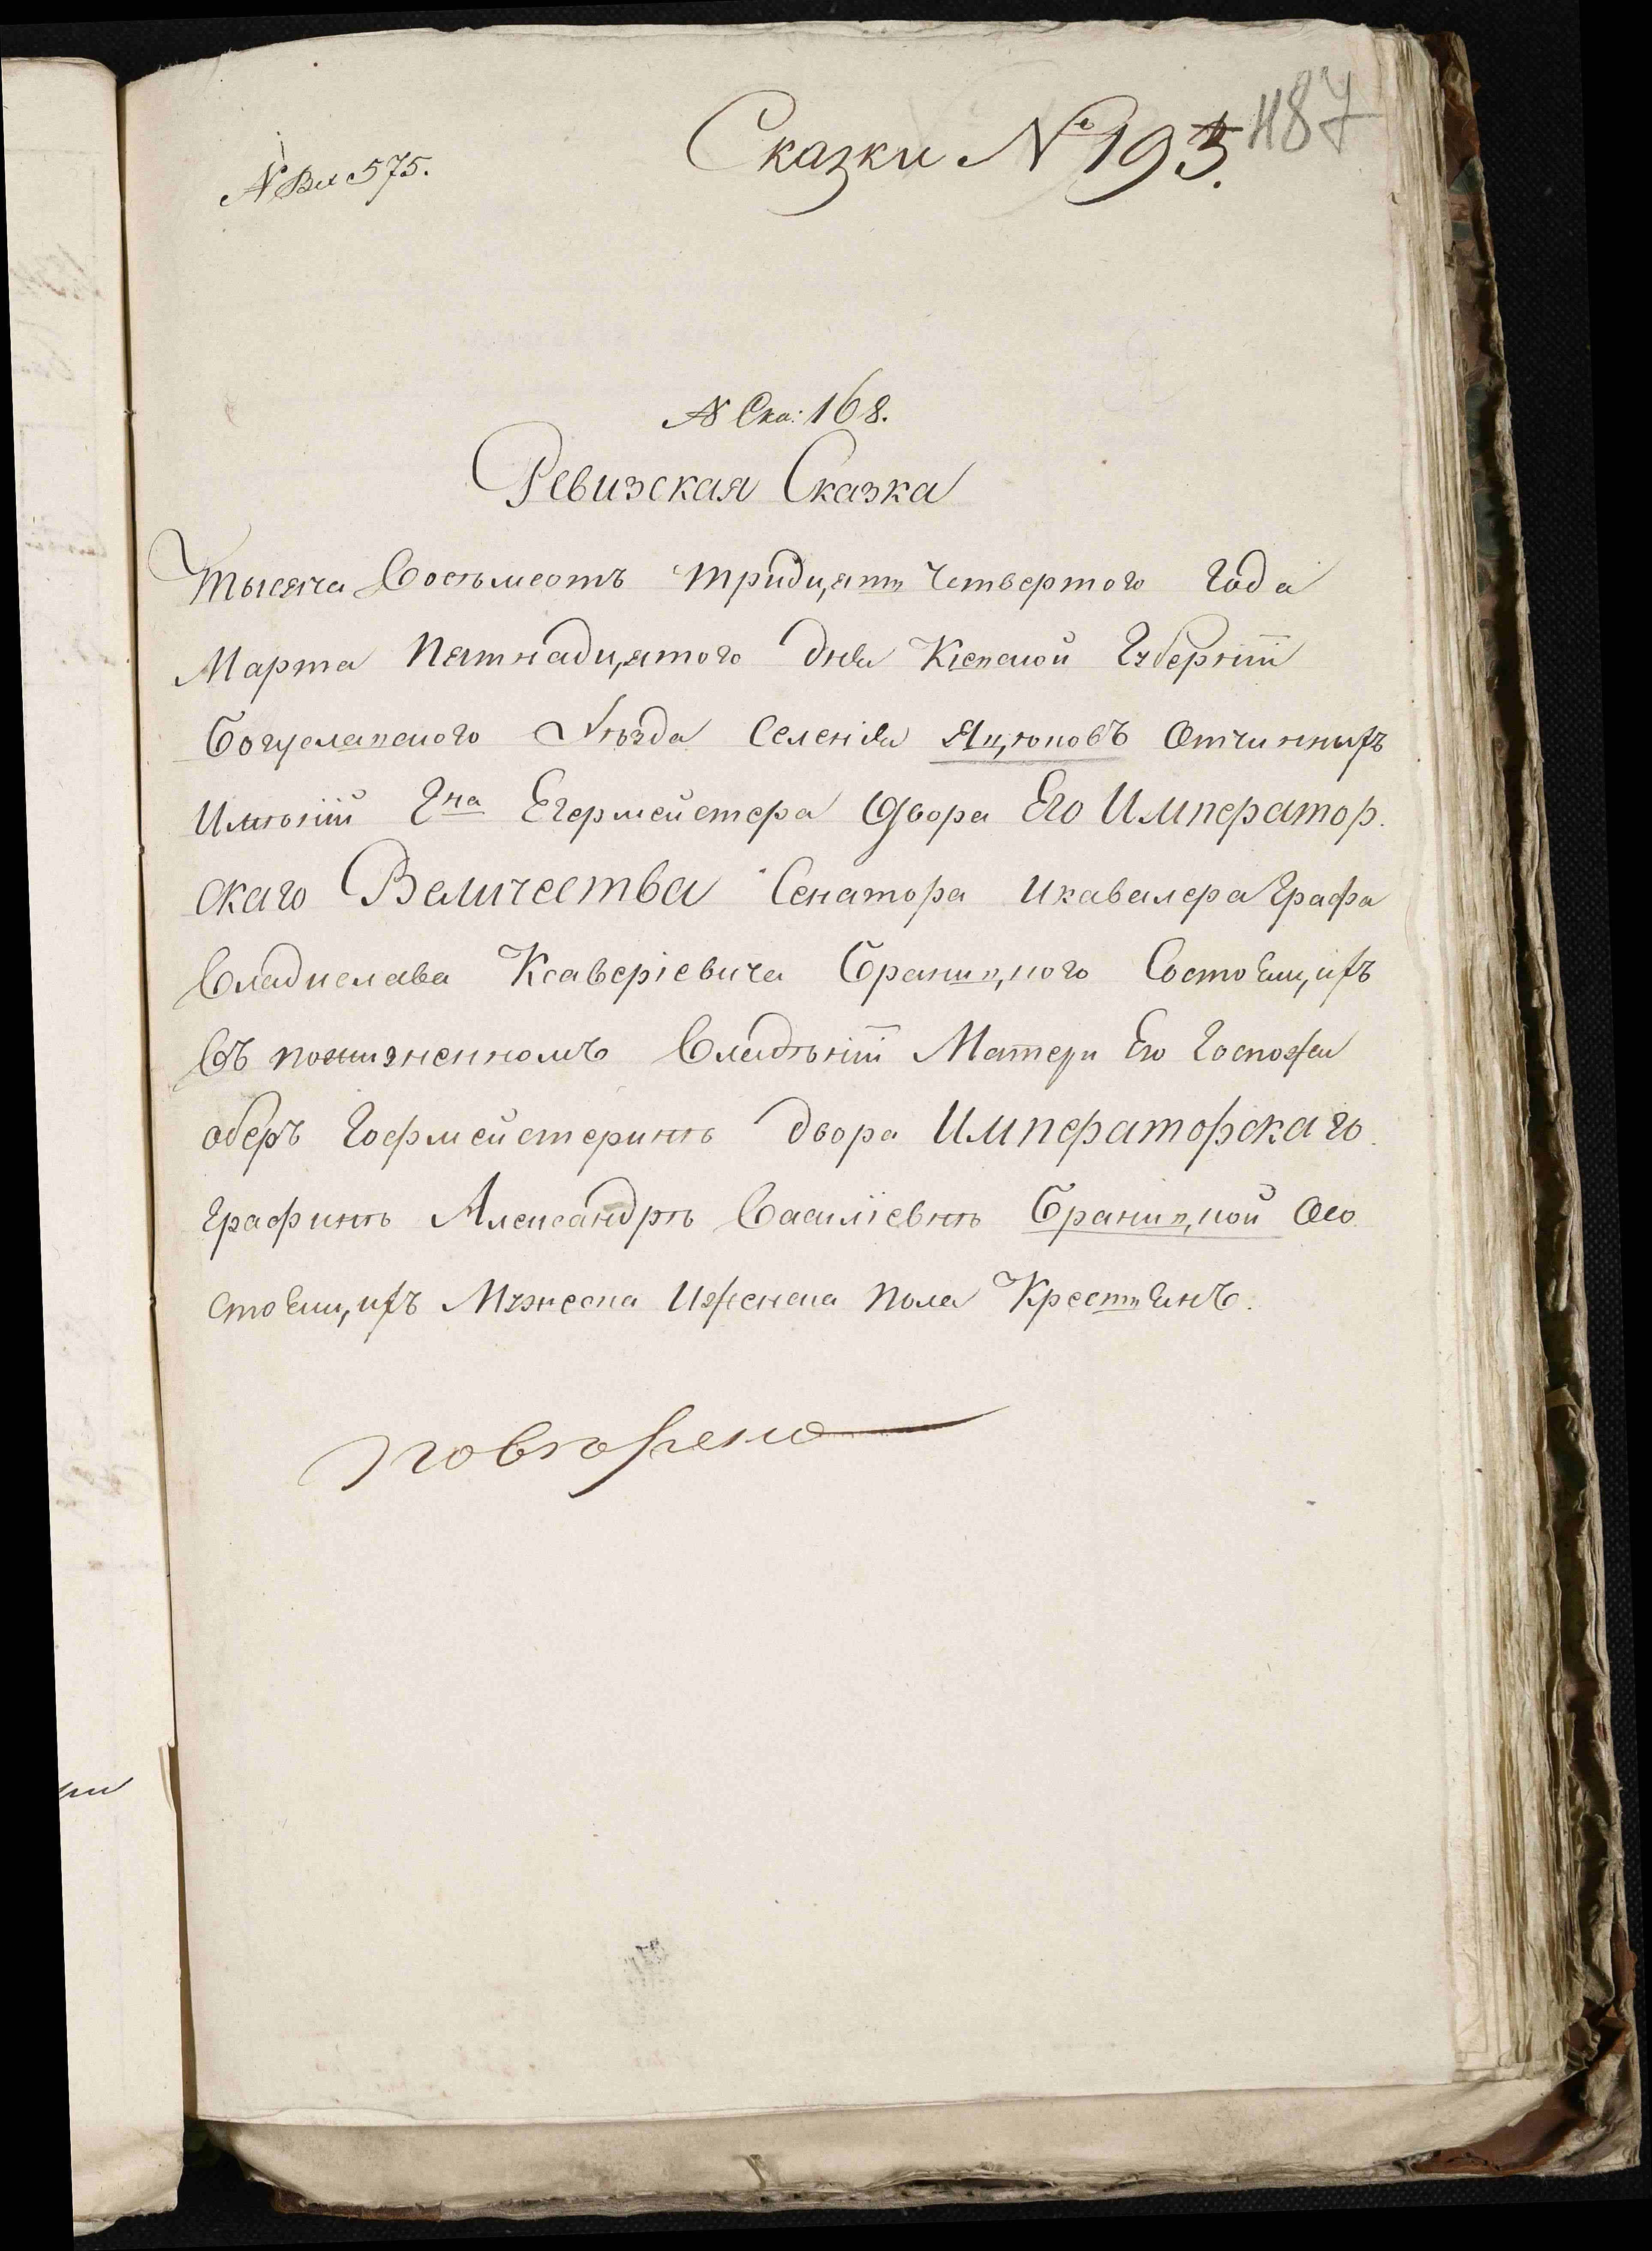 487
Сказки № 193.
№ Вх 575.
№ Ска: 168.
Ревизская Сказка
Тысяча Восьмсотъ тридцять Четвертого Года
Марта Пятнадцятого дня Кіевской Губерніи
Богуславского Уѣзда Селенія Яцюковъ Отчинныхъ
Имѣній Гна Егермейстера Двора Его Император.
скаго Величества Сенатора и кавалера Графа
Владислава Ксаверіевича Браницкого Состоящихъ
въ пожизненномъ Владѣніи Матери Его Госпожи
оберъ Гофмейстеринѣ двора Императорскаго
Графинѣ Александрѣ Василіевнѣ Браницкой Осо
стоящихъ Мужеска и женска Пола Крестьянъ.
повѣрено